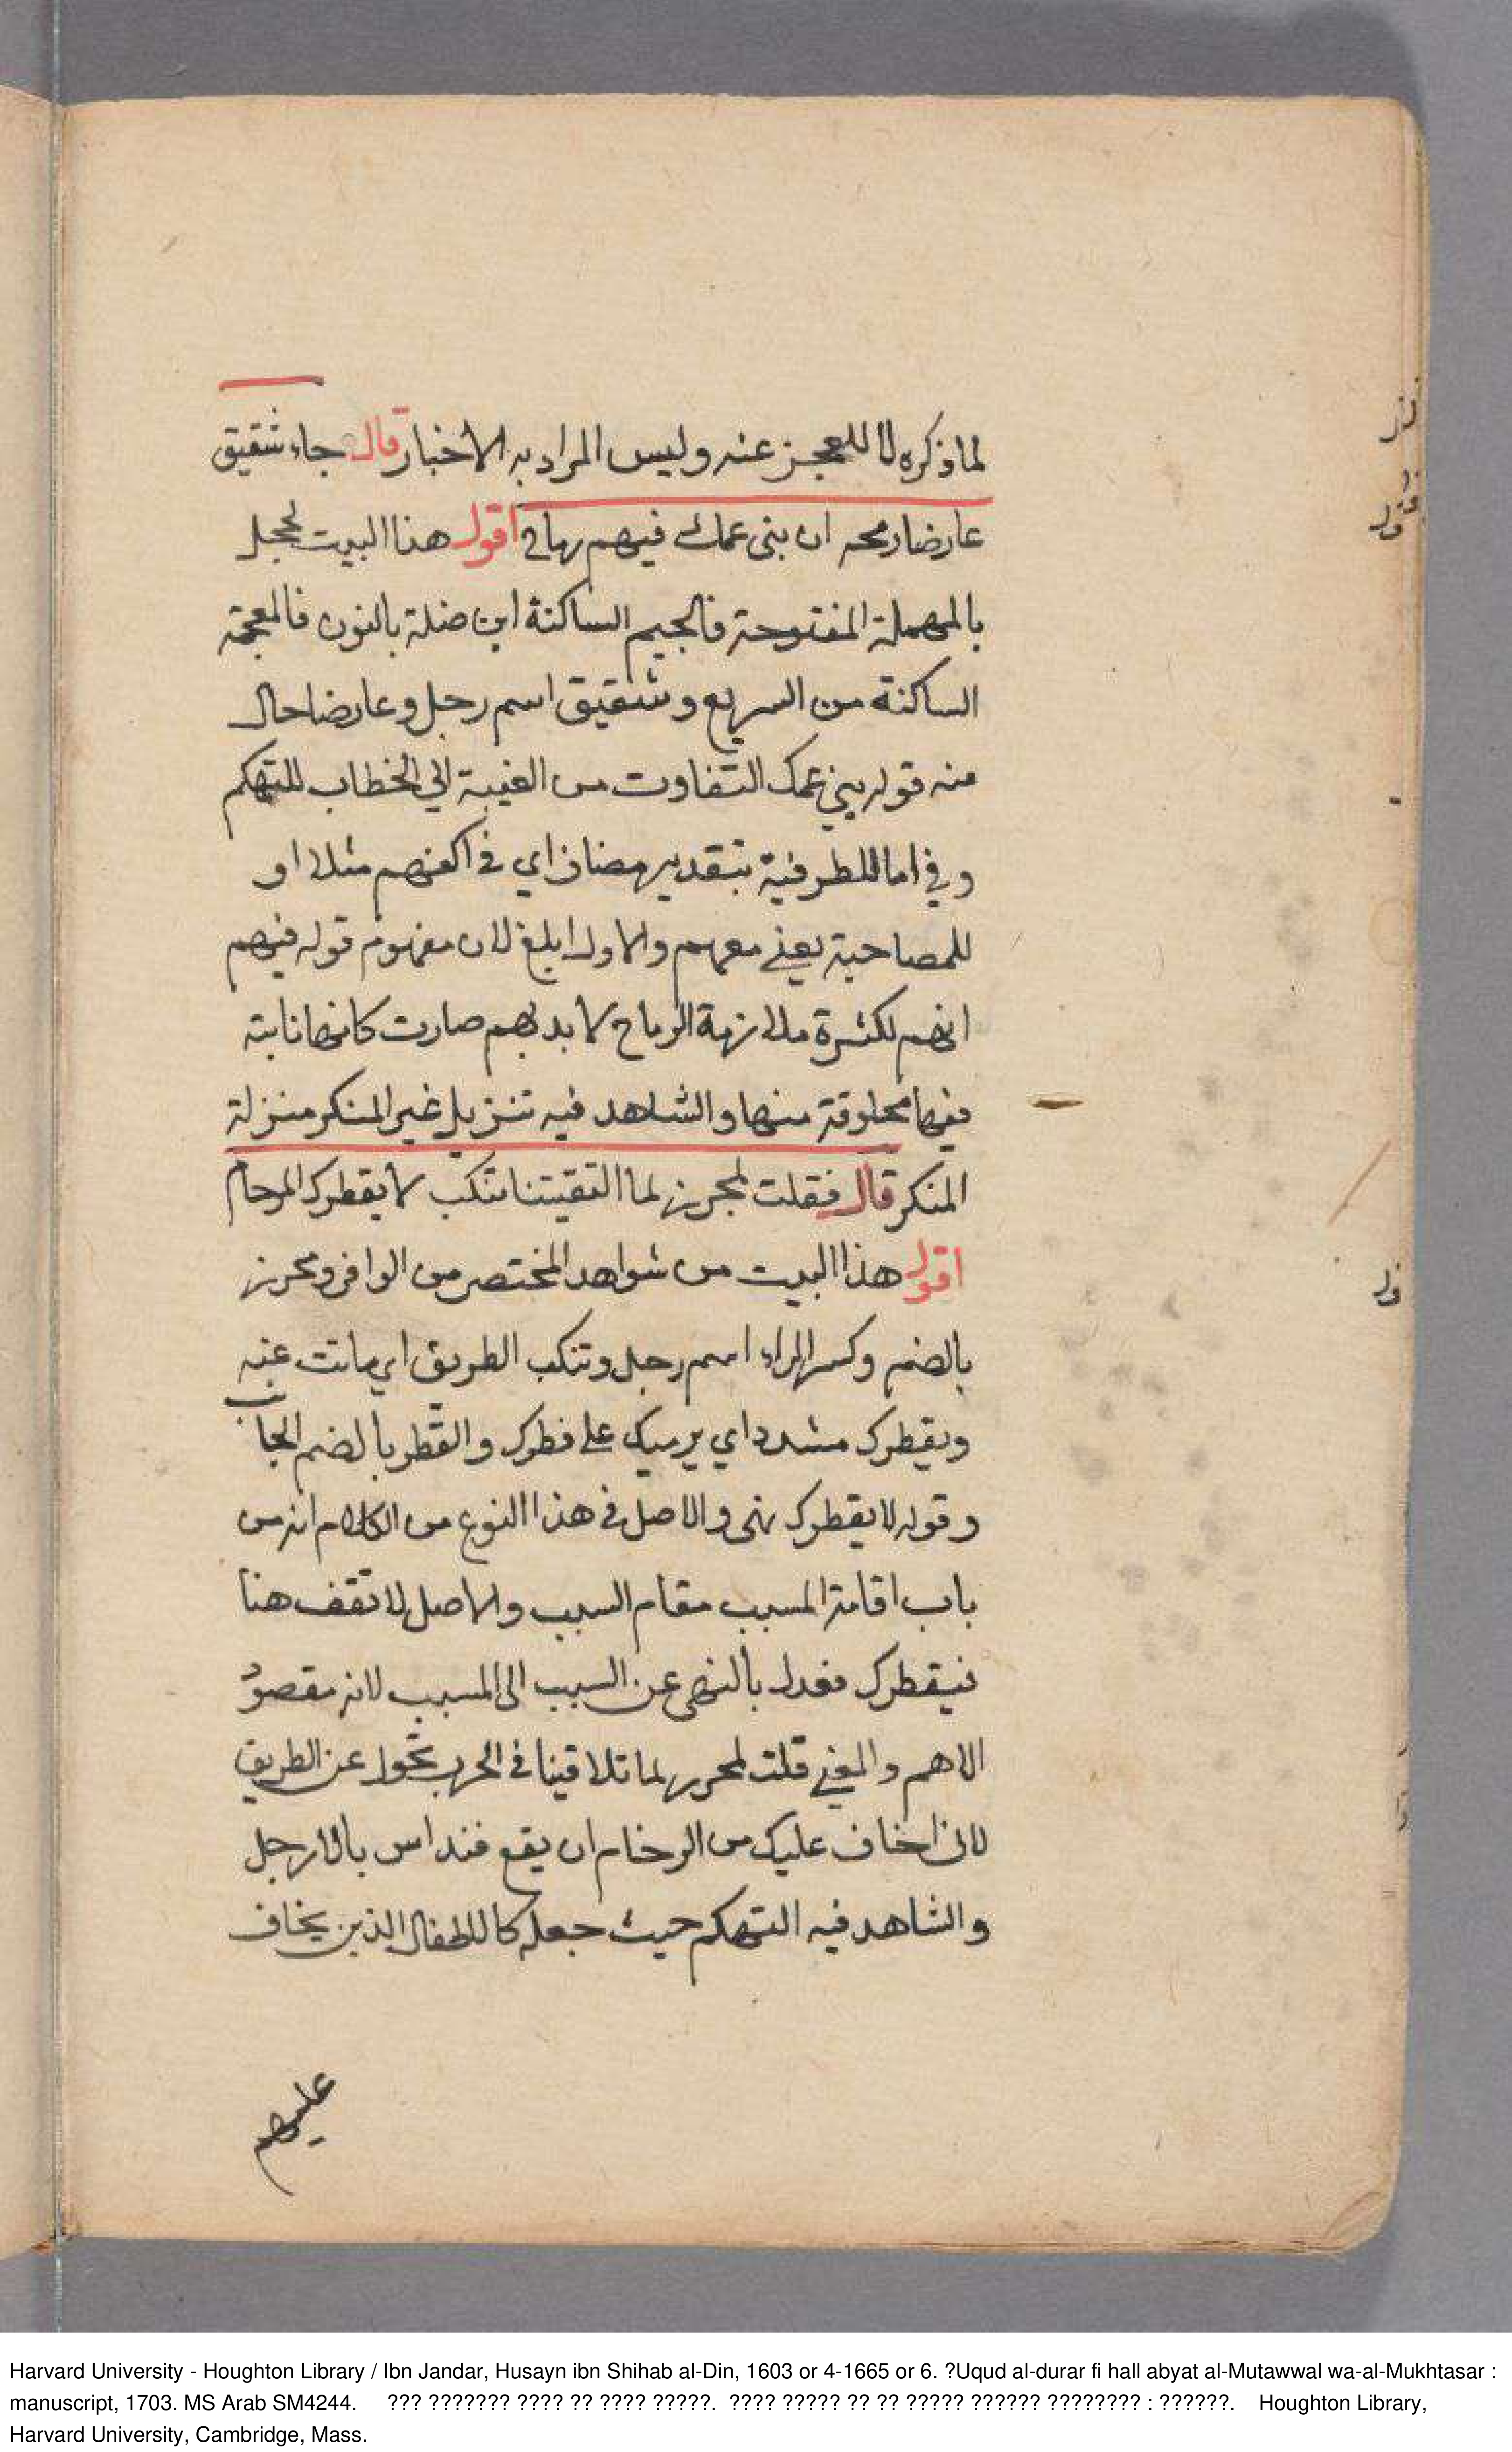 لما ذكره لا للعجز عنه وليس المراد به الاخبار قال جاء شقيق
عارضا رمحه ان بنى عمك فيهم رماح اقول هذا البيت لحجل
بالمهملة المفتوحة فالجيم الساكنة ابن ضلة بالنون فالمعجمة
الساكنة من السريع وشقيق اسم رجل وعارضا حال
منه قوله بني عمك التفاوت من الغيبة الي الخطاب للتهكم
وفي اما للظرفية بتقدير مضاف اي في اكفهم مثلا او
للمصاحبة يعني معهم والاول ابلغ لان مفهوم قوله فيهم
انهم لكثرة ملازمة الرماح لا بد بهم صارت كانها نابتة
فيها مخلوقة منها والشاهد فيه تنزيل غير المنكر منزلة
المنكر قال فقلت لمحرز لما التقيتنا تنكب لا يقطرك الرحام
اقول هذا البيت من شواهد المختصر من الوافر ومحرز
بالضم وكسر الراء اسم رجل وتنكب الطريق اي مانت عنه
ويقطرك مشدد اي يرميك على قطرك والقطر بالضم الجانب
وقوله لا يقطرك نهى والاصل في هذا النوع من الكلام انه من
باب اقامة المسبب مقام السبب والاصل لا تقف هنا
فيقطرك فعدل بالنهى عن السبب الى المسبب لانه مقصود
الاهم والمعنى قلت لمحرر لما تلاقينا في الحرب تحول عن الطريق
لاني اخاف عليك من الرخام ان يقع فنداس بالارجل
والشاهد فيه التهكم حيث جعله كاللطفال الذين يخاف
عليهم
Harvard University - Houghton Library / Ibn Jandar, Husayn ibn Shihab al-Din, 1603 or 4-1665 or 6. ?Uqud al-durar fi hall abyat al-Mutawwal wa-al-Mukhtasar :
manuscript, 1703. MS Arab SM4244. ??? ??????? ???? ?? ???? ?????. ???? ????? ?? ?? ????? ?????? ???????? : ??????. Houghton Library,
Harvard University, Cambridge, Mass.